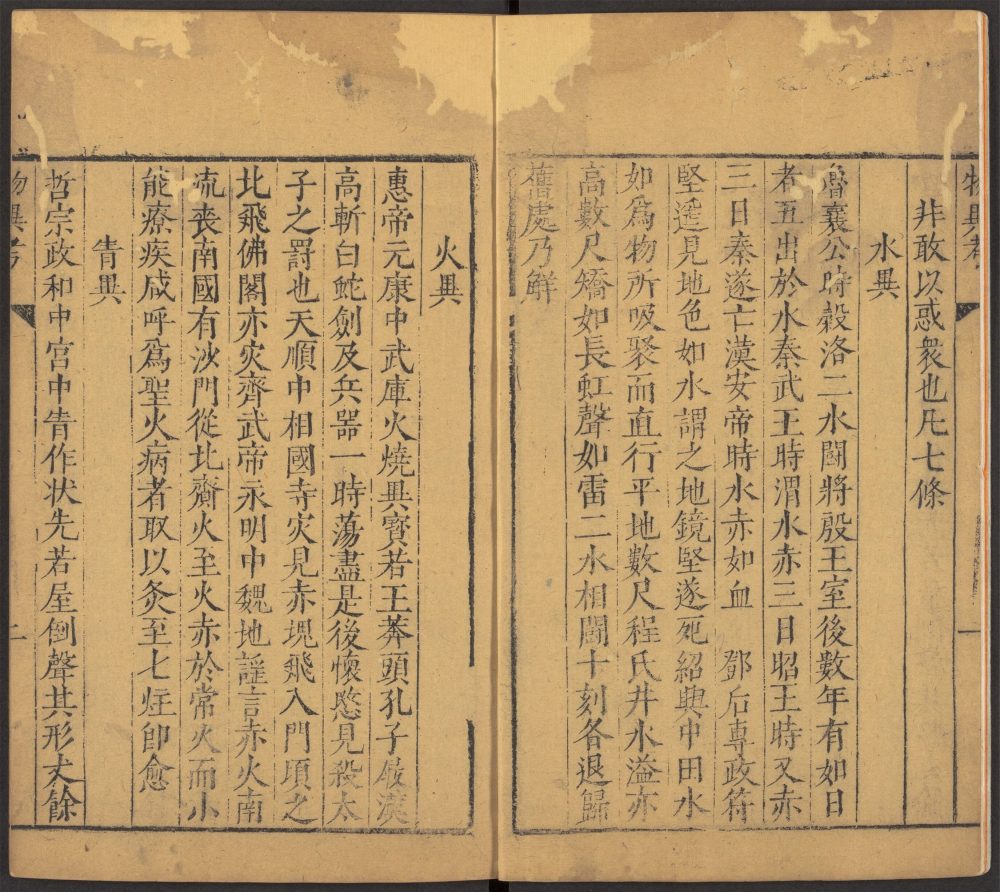 物異考
一
非敢以惑衆也凡七條
水異
魯襄公時穀洛二水鬬將毀王室後數年有如日
者五出於水秦武王時渭水赤三日昭王時又赤
三日秦遂亡漢安帝時水赤如血 鄧后專政符
堅遥見地色如水謂之地鏡堅遂死紹興中田水
如爲物所吸聚而直行平地數尺程氏井水溢亦
高數尺矯如長虹聲如雷二水相鬬十刻各退歸
舊處乃解
火異
惠帝元康中武庫火燒異寳若王莽頭孔子屐漢
高斬白蛇劍及兵器一時蕩盡是後懷愍見殺太
子之罸也天順中相國寺灾見赤塊飛入門頃之
北飛佛閣亦灾齊武帝永明中 魏地謡言赤火南
流喪南國有沙門從北齎火至火赤於常火而小
能療疾咸呼爲聖火病者取以灸至七炷即愈
眚異
哲宗政和中宫中眚作状先若屋倒聲其形丈餘
物異考
二